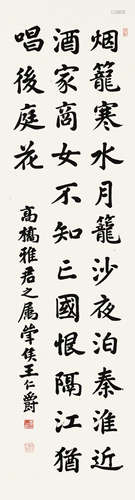 烟籠寒水月籠沙夜泊秦淮近
酒家商女不知亡國恨隔江猶
唱後庭花
高橋雅君之属侯王仁爵